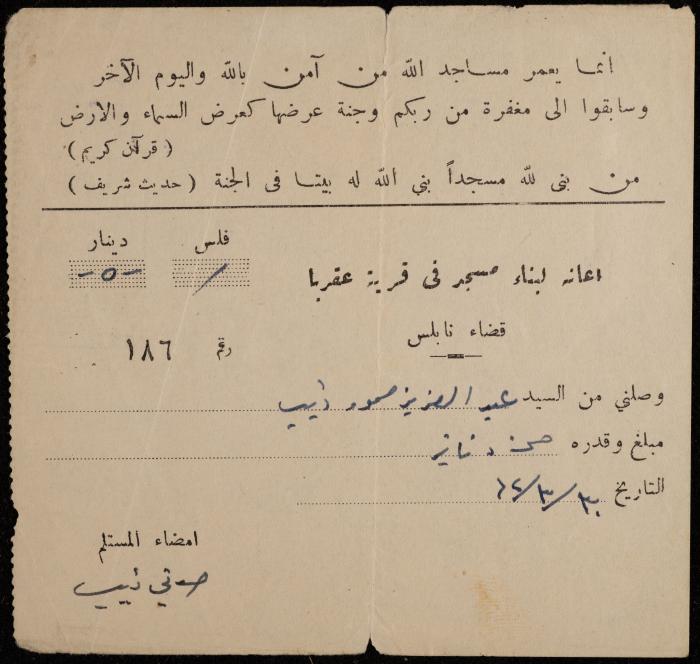 انما يعمر مساجد الله من آمن بالله واليوم الآخر
وسابقوا الى مغفرة من ربكم وجنة عرضها كعرض السماء والارض
( قرآن كريم )
من بنى لله مسجداً بني الله له بيتا في الجنة ( حديث شريف )
فلس دينار
/ -٥-
اعانه لبناء مسجد في قرية عقربا
قضاء نابلس
رقم ١٨٦
وصلني من السيد عبد العزيز محمود ذيب
مبلغ وقدره خمسة دنانير
التاريخ
امضاء المستلم
صدقي ذيب